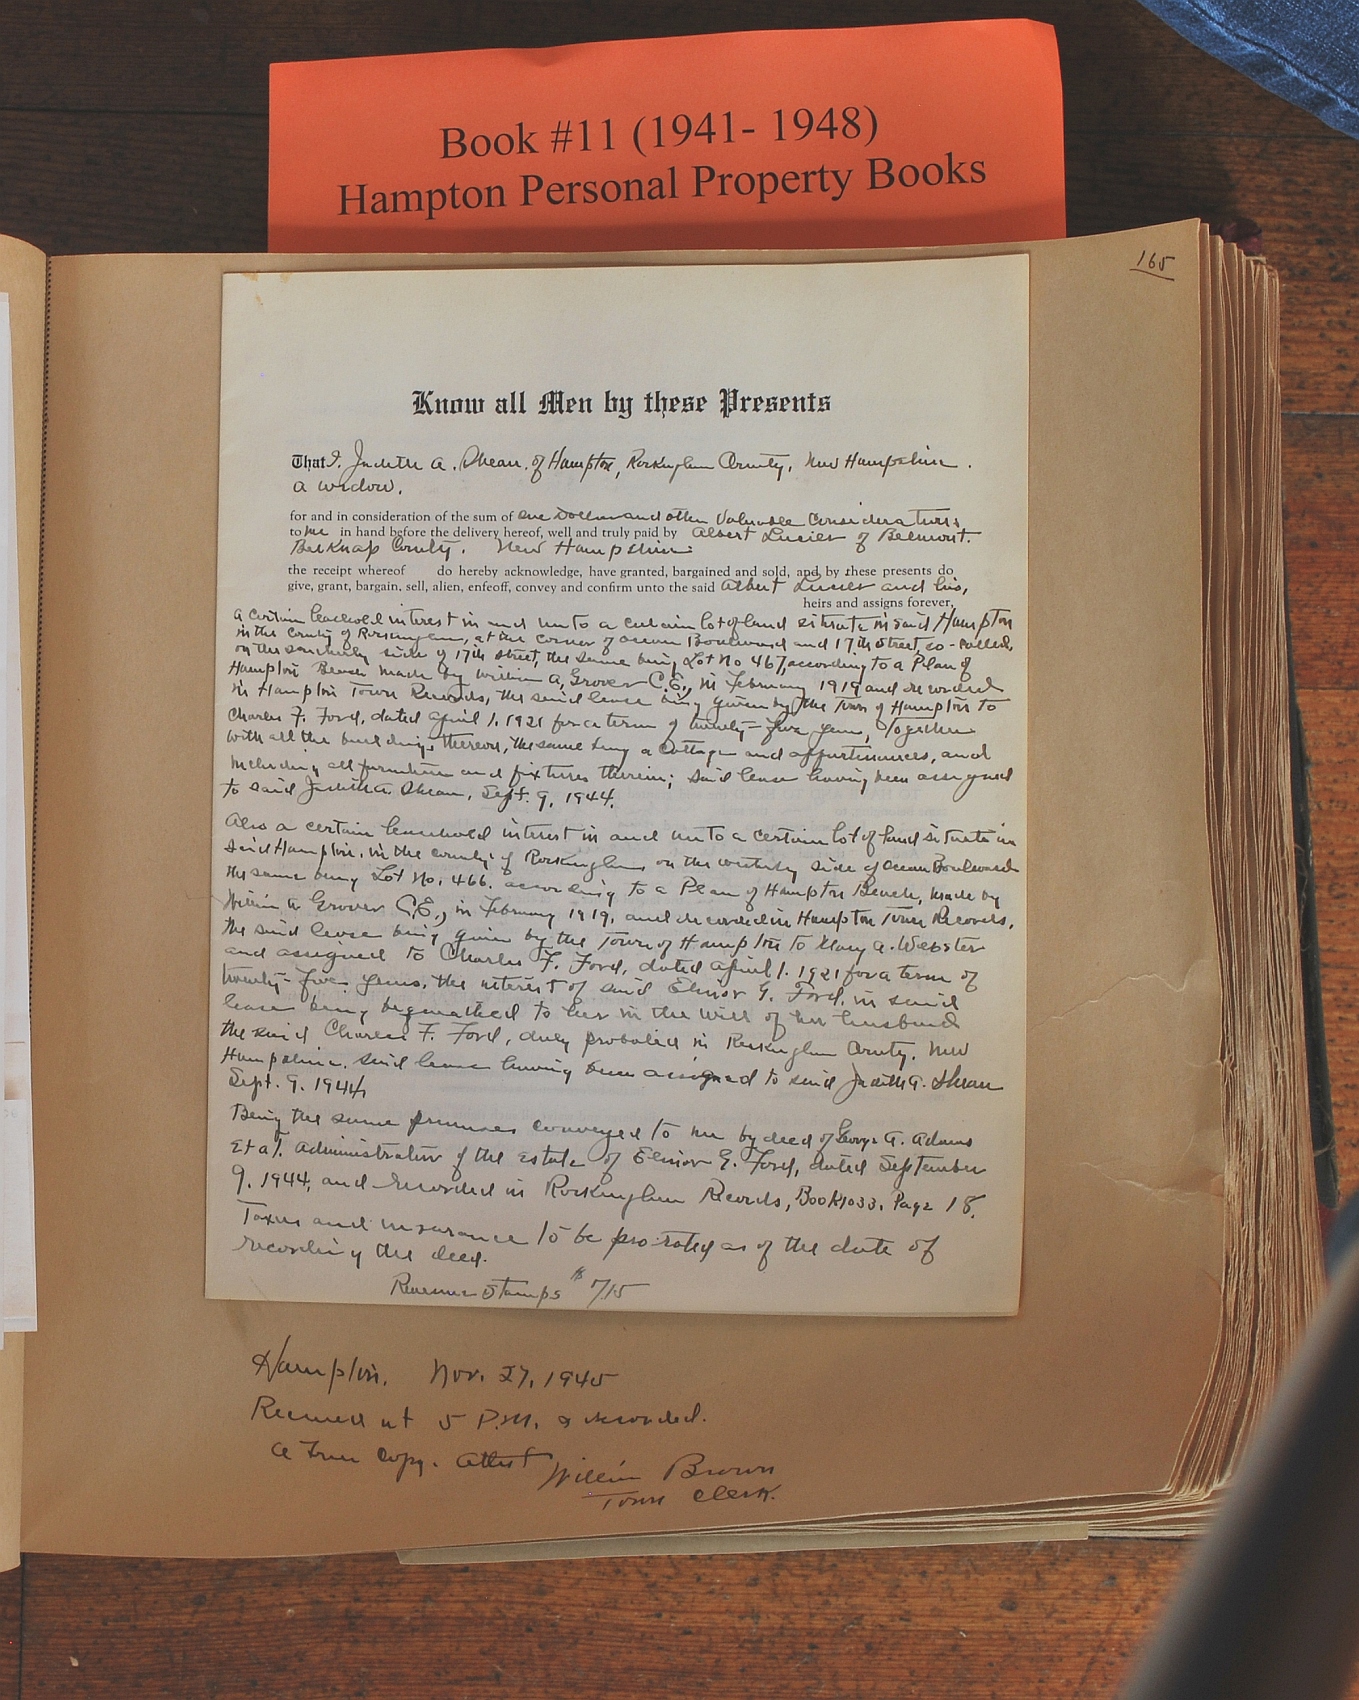 Book #11 (1941- 1948)
Hampton Personal Property Books
165
Know all Men by these Presents
That I, Judith A. Shean, of Hampton, Rockingham County, New Hampshire.
a widow,
for and in consideration of the sum of one dollar and other valuable considerations
to me in hand before the delivery hereof, well and truly paid by Albert Lucier of Belmont.
Belknap County. New Hampshire.
the receipt whereof do hereby acknowledge, have granted, bargained and sold, and by these presents do
give, grant, bargain, sell, alien, enfeoff, convey and confirm unto the said Albert Lucier and his,
heirs and assigns forever,
a certain leasehold interest in and unto a certain lot of land situate in said Hampton
in the County of Rockingham, at the corner of Ocean Boulevard and 17th Street, so-called,
on the southerly side of 17th Street, the same being Lot No 467, according to a Plan of
Hampton Beach made by William A, Grover C.E., in February 1919 and recorded
in Hampton Town Records, the said lease being given by the Town of Hampton to
Charles F. Ford, dated April 1, 1921 for a term of twenty-five years, together
with all the buildings thereon, the same being a cottage and appurtenances, and
including all furniture and fixtures therein; said lease having been assigned
to said Judith A. Shean, Sept. 9, 1944.
Also a certain leasehold interest in and unto a certain lot of land situate in
said Hampton, in the county of Rockingham on the westerly side of Ocean Boulevard
the same being Lot No. 466. according to a Plan of Hampton Beach, made by
William A Grover C.E., in February 1919, and recorded in Hampton Town Records,
the said lease being given by the Town of Hampton to Mary A. Webster
and assigned to Charles F. Ford, dated April 1. 1921 for a term of
twenty-five years, the interest of said Elinor G. Ford, in said
lease being bequeathed to her in the will of her husband
the said Charles F. Ford, duly probated in Rockingham County, New
Hampshire. said lease having been assigned to said Judith A. Shean
Sept. 9. 1944
Being the same premises conveyed to me by deed of George A. Adams
Et al. Administrator of the Estate of Elinor G. Ford, dated September
9, 1944, and recorded in Rockingham Records, Book 1033, Page 18.
Taxes and insurance to be pro-rated as of the date of
recording the deed.
Revenue Stamps $ 7/15
Hampton, Nov. 27, 1945
Received at 5 P.M. & recorded.
A True Copy. Attest
William Brown
Town Clerk.